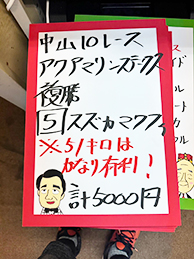 中山10レース
アクアマリンステークス
複勝
5 スズカマクフィ
※51キロは
かなり有利!
計5000円